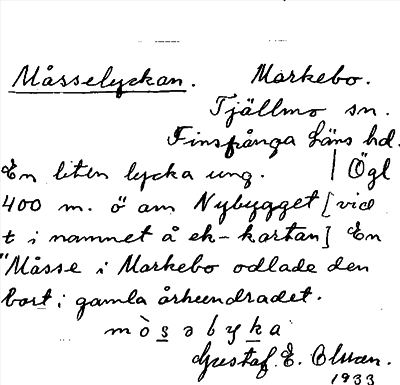 Måsselyckan. Markebo.
Tjällmo sn.
Finspånga läns hd.
En liten lycka ung. | Ögl
400 m. ö om Nybygget [vid
t i namnet å ek-kartan] En
"Måsse i Markebo odlade den
bort i gamla århundradet.
Gustaf E. Olsson.
1933